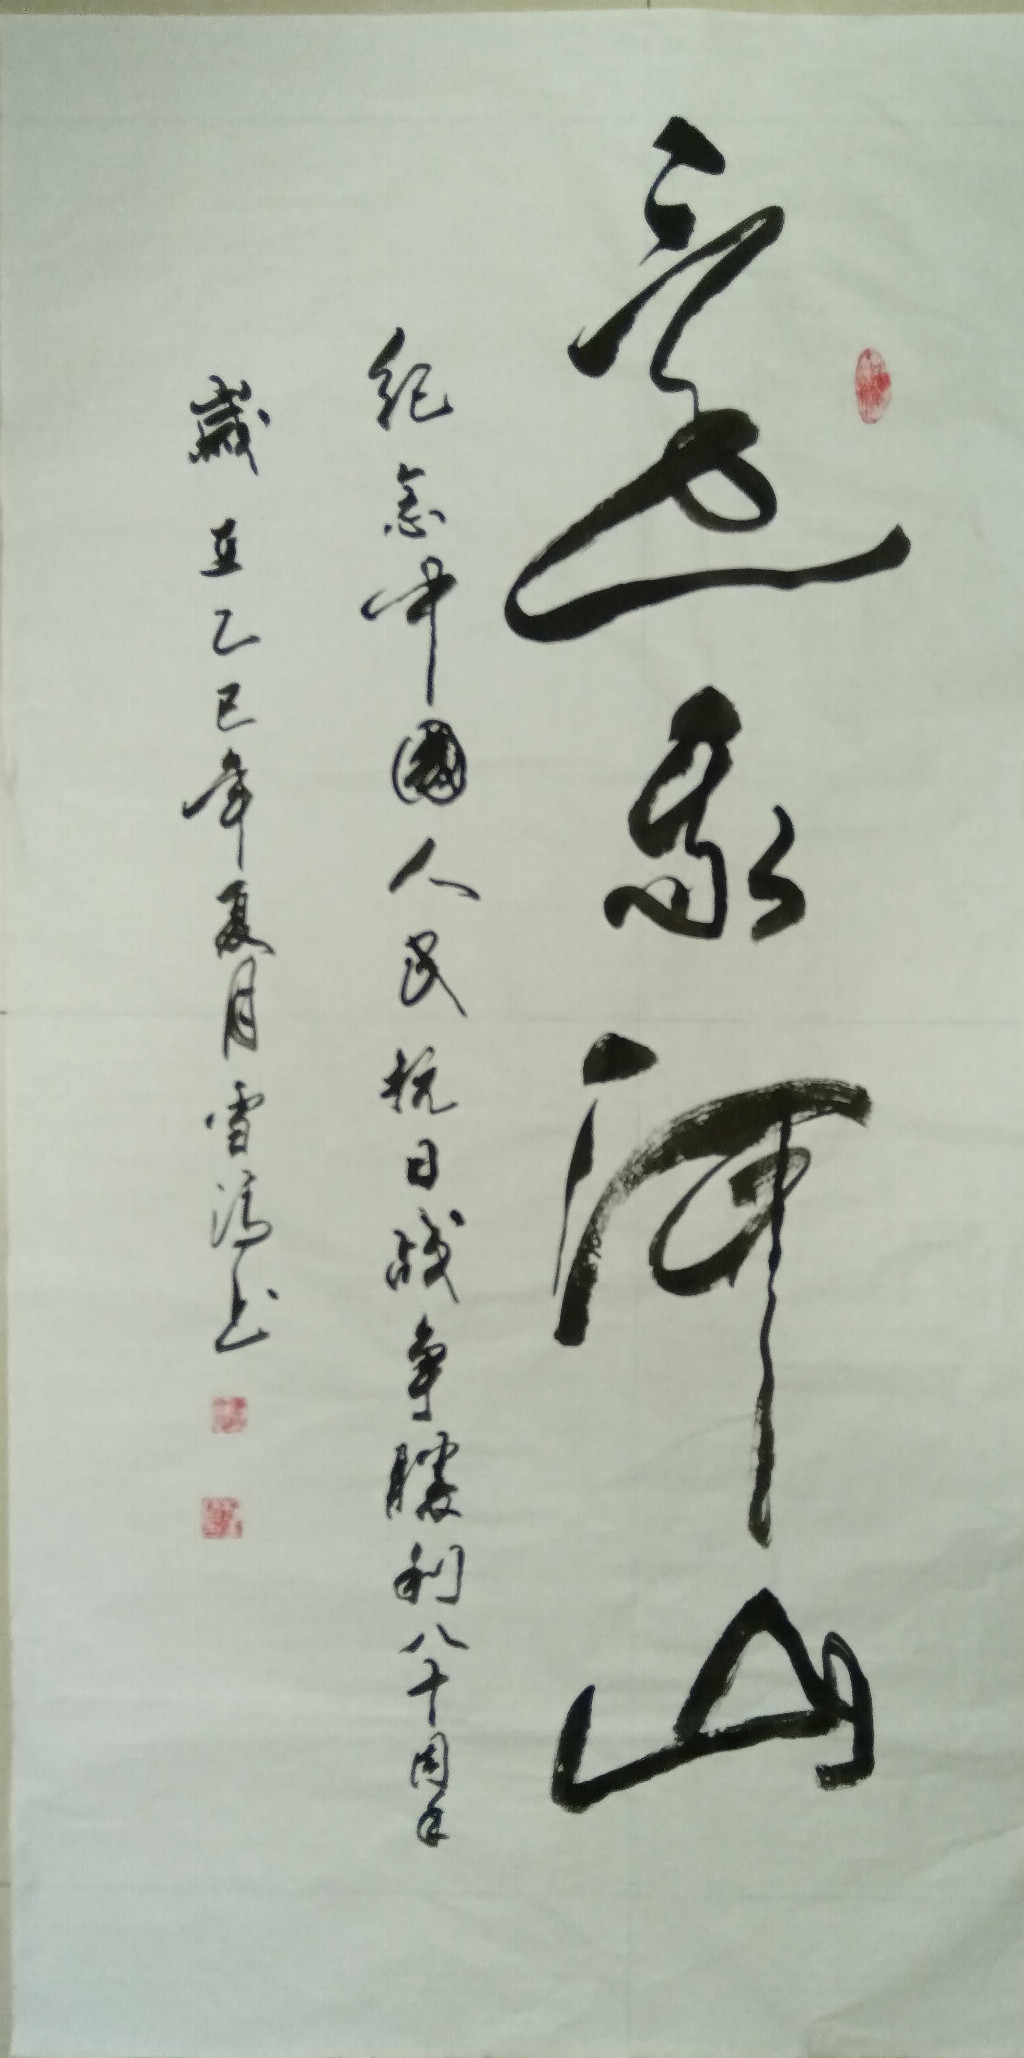 還我河山
紀念中國人民抗日战争勝利八十周年
歲在乙巳年夏月雪涛书